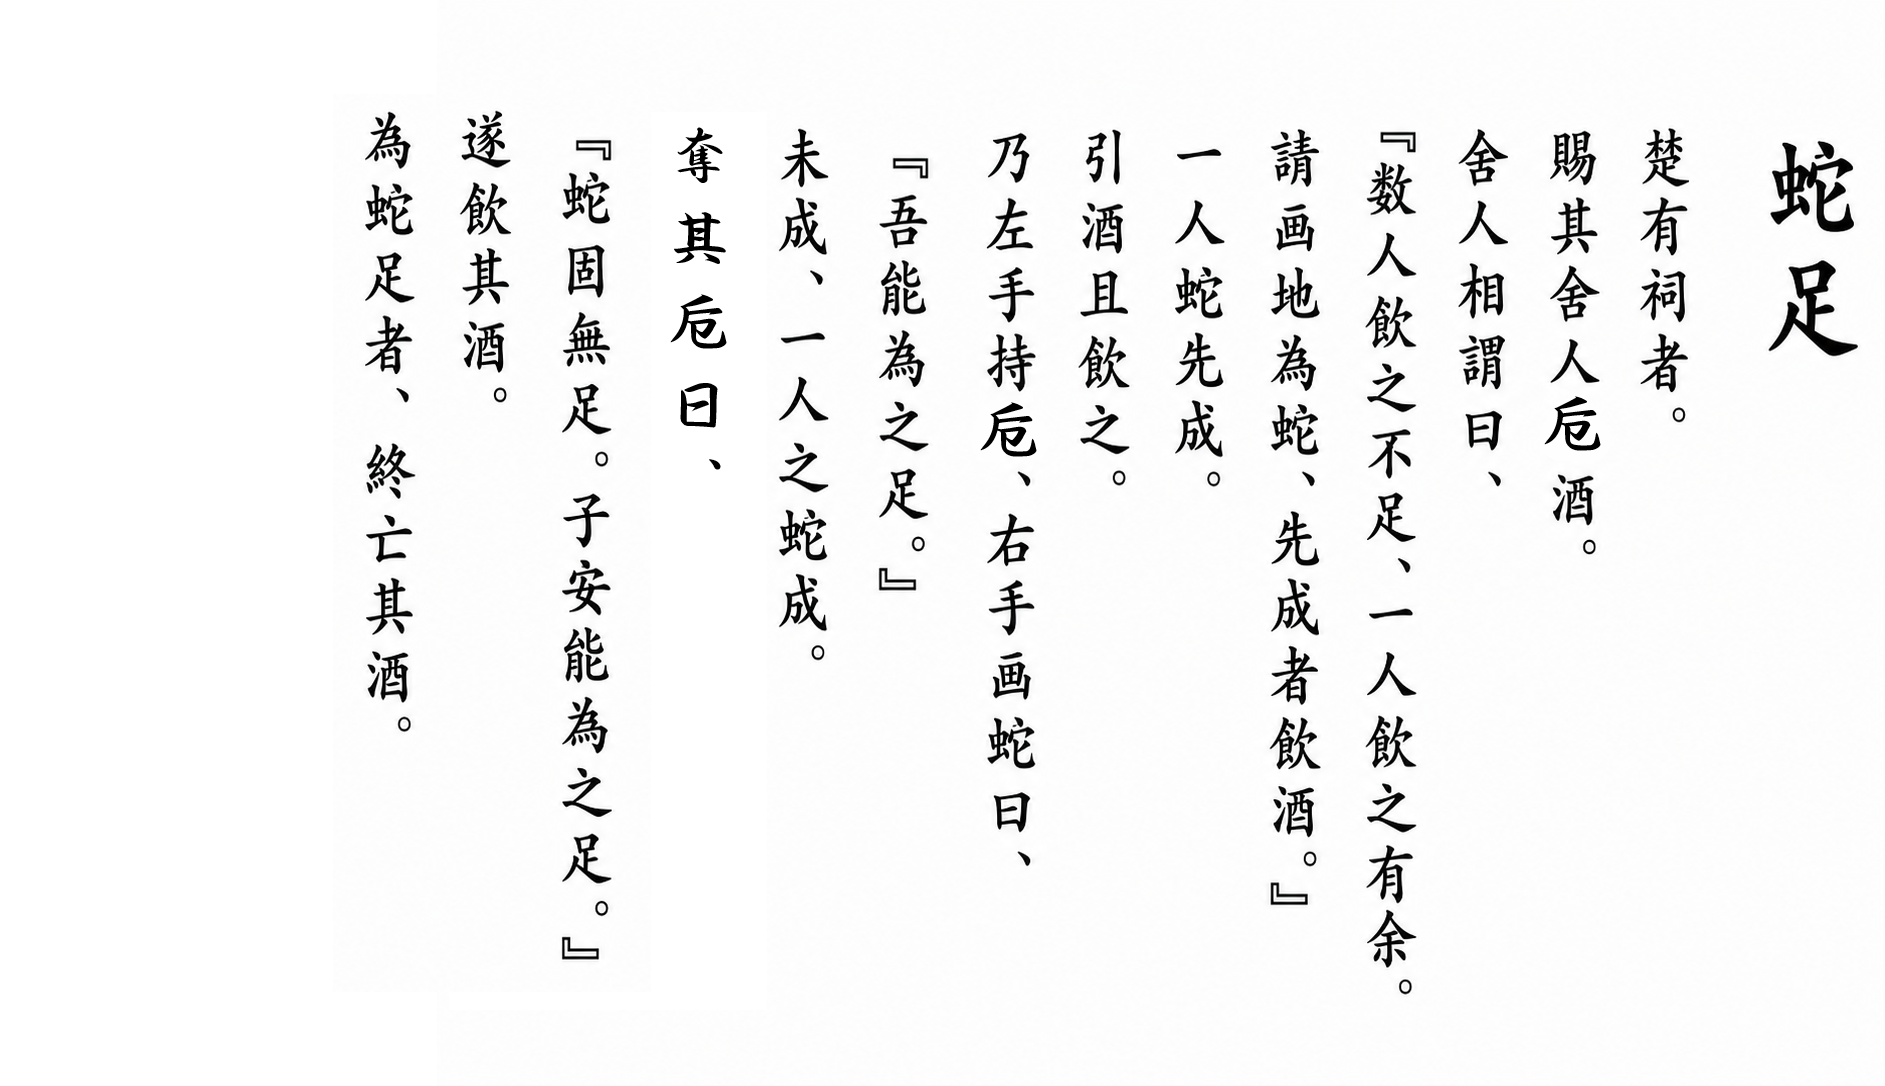 蛇足
楚有祠者。
賜其舎人卮酒。
舎人相謂曰、
『数人飲之不足、一人飲之有余。
請画地為蛇、先成者飲酒。』
一人蛇先成。
引酒且飲之。
乃左手持卮、右手画蛇曰、
『吾能為之足。』
未成、一人之蛇成。
奪其卮曰、
『蛇固無足。子安能為之足。』
遂飲其酒。
為蛇足者、終亡其酒。